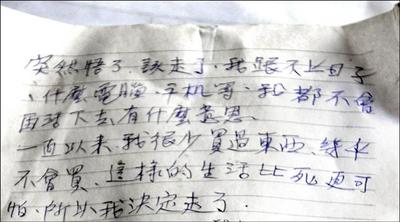 突然悟了該走了,我跟不上日子
、什麼電腦、手机等,我都不會
再活下去有什麼意思
一直以來,我很少買過東西、綠水
不會買、這樣的生活比死更可
怕,所以我決定走了.